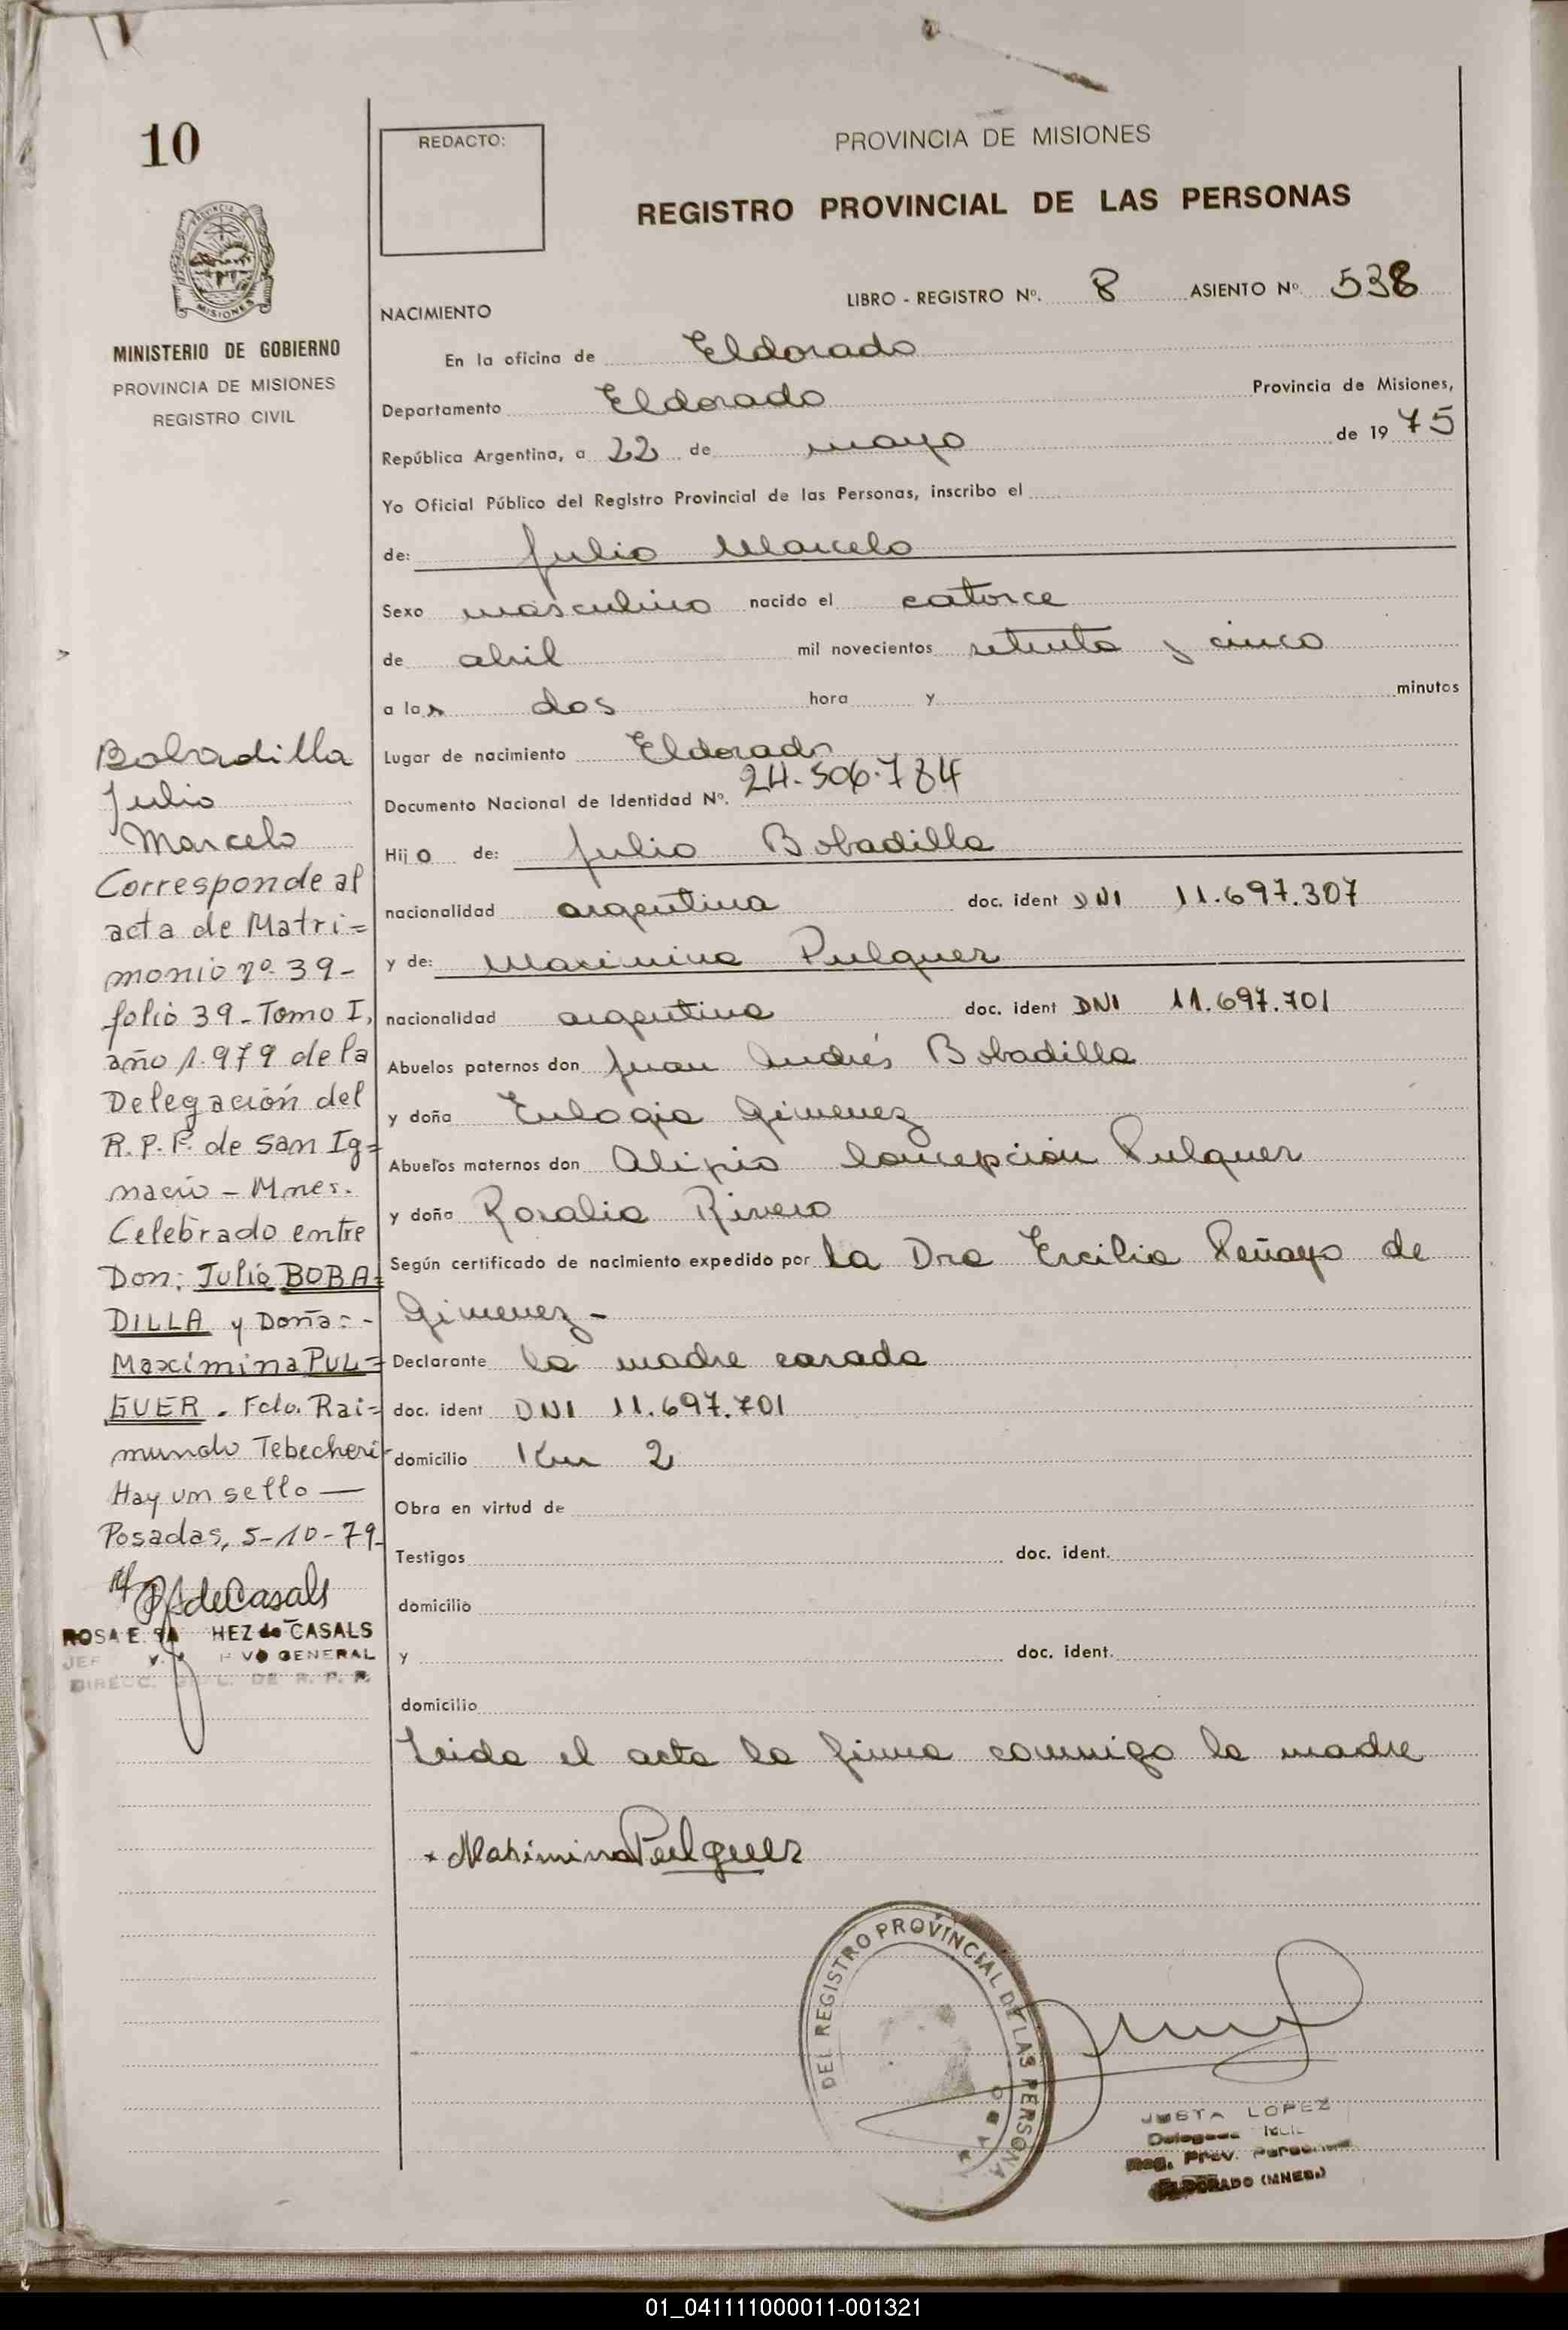 10
MINISTERIO DE GOBIERNO
PROVINCIA DE MISIONES
REGISTRO CIVIL
REDACTO:
PROVINCIA DE MISIONES
REGISTRO PROVINCIAL DE LAS PERSONAS
NACIMIENTO
LIBRO - REGISTRO Nº. 8 ASIENTO Nº 538
En la oficina de Eldorado
Departamento Eldorado Provincia de Misiones,
República Argentina, a 22 de mayo de 19 75
Yo Oficial Público del Registro Provincial de las Personas, inscribo el
de: Julio Marcelo
Sexo masculino nacido el catorce
de abril mil novecientos setenta y cinco
a las dos hora y minutos
Lugar de nacimiento Eldorado
Documento Nacional de Identidad Nº. 24.506.784
Hijo de: Julio Bobadilla
nacionalidad argentina doc. ident DNI 11.697.307
y de: Maximina Pulguer
nacionalidad argentina doc. ident DNI 11.697.701
Abuelos paternos don Juan Andrés Bobadilla
y doña Eulogia Gimenez
Abuelos maternos don Alipio Concepción Pulguer
y doña Rosalia Rivero
Según certificado de nacimiento expedido por la Dra Ercilia Peñayo de
Gimenez-
Declarante la madre casada
doc. ident DNI 11.697.701
domicilio Km 2
Obra en virtud de
Testigos doc. ident.
domicilio
y doc. ident.
domicilio
Leida el acta la firma conmigo la madre
Maximina Pulguer
Bobadilla
Julio
Marcelo
Corresponde al
acta de Matri=
monio nº 39-
folio 39-Tomo I,
año 1.979 de la
Delegación del
R.P.P. de San Ig=
nacio - Mnes.
Celebrado entre
Don: Julio BOBA=
DILLA y Doña:-
Maximina PUL=
GUER. Fdo. Rai=
mundo Tebecheri-
Hay un sello —
Posadas, 5-10-79-
RSdeCasals
ROSA E. HEZ de CASALS
VO GENERAL
DIRECC. DE R. P. P.
DEL REGISTRO PROVINCIAL DE LAS PERSONA
JUSTA LOPEZ
Delegada
Reg. Prov. Personas
ELDORADO (MNES.)
01_041111000011-001321